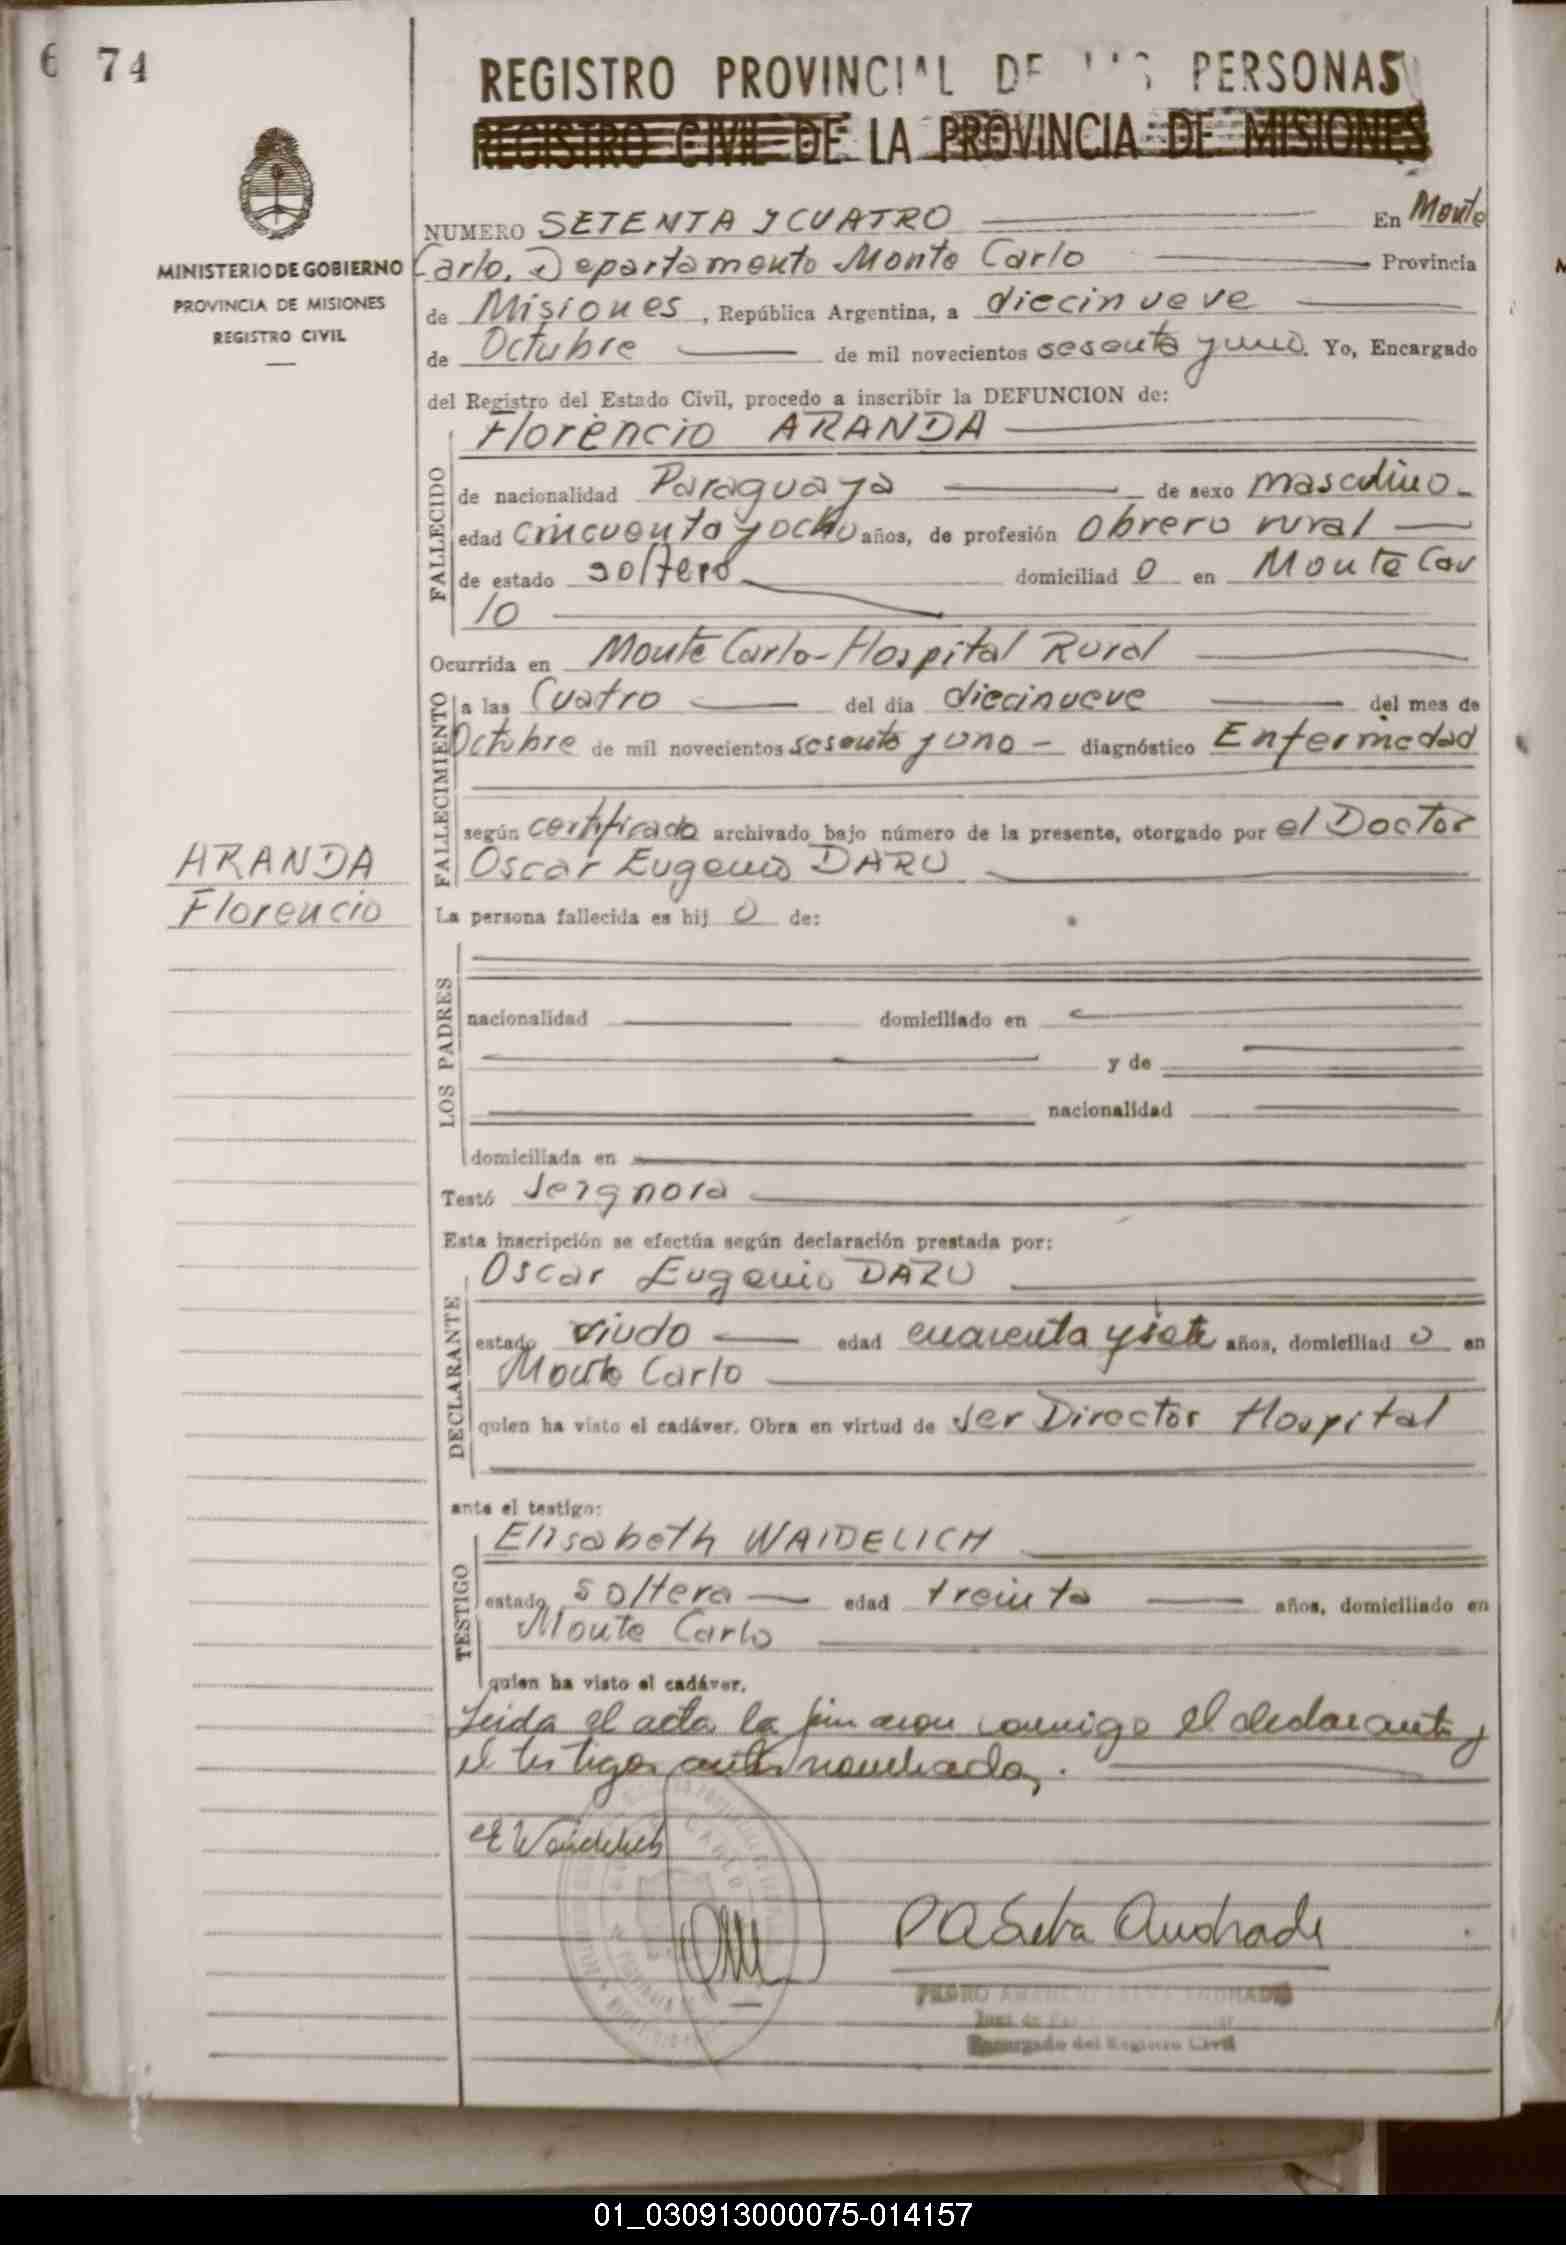 74
REGISTRO PROVINCIAL DE LAS PERSONAS
REGISTRO CIVIL DE LA PROVINCIA DE MISIONES
MINISTERIO DE GOBIERNO
PROVINCIA DE MISIONES
REGISTRO CIVIL
NUMERO SETENTA Y CUATRO En Monte
Carlo, Departamento Monte Carlo Provincia
de Misiones, República Argentina, a diecinueve
de Octubre de mil novecientos sesenta y uno. Yo, Encargado
del Registro del Estado Civil, procedo a inscribir la DEFUNCION de:
Florencio ARANDA
FALLECIDO
de nacionalidad Paraguaya de sexo masculino
edad cincuenta y ocho años, de profesión obrero rural
de estado soltero domiciliad o en Monte Car
lo
Ocurrida en Monte Carlo-Hospital Rural
FALLECIMIENTO
a las Cuatro del dia diecinueve del mes de
Octubre de mil novecientos sesenta y uno - diagnóstico Enfermedad
según certificado archivado bajo número de la presente, otorgado por el Doctor
Oscar Eugenio DARU
ARANDA
Florencio
La persona fallecida es hij o de:
LOS PADRES
nacionalidad domiciliado en
y de
nacionalidad
domiciliada en
Testó se ignora
Esta inscripción se efectúa según declaración prestada por:
Oscar Eugenio DARU
DECLARANTE
estado viudo edad cuarenta y siete años, domiciliad o en
Monte Carlo
quien ha visto el cadáver. Obra en virtud de ser Director Hospital
ante el testigo:
Elisabeth WAIDELICH
TESTIGO
estado soltera edad treinta años, domiciliado en
Monte Carlo
quien ha visto el cadáver.
Leida el acta la firmaron conmigo el declarante y
el testigo
E Waidelich
PASelva Andrade
Encargado del Registro Civil
01_030913000075-014157